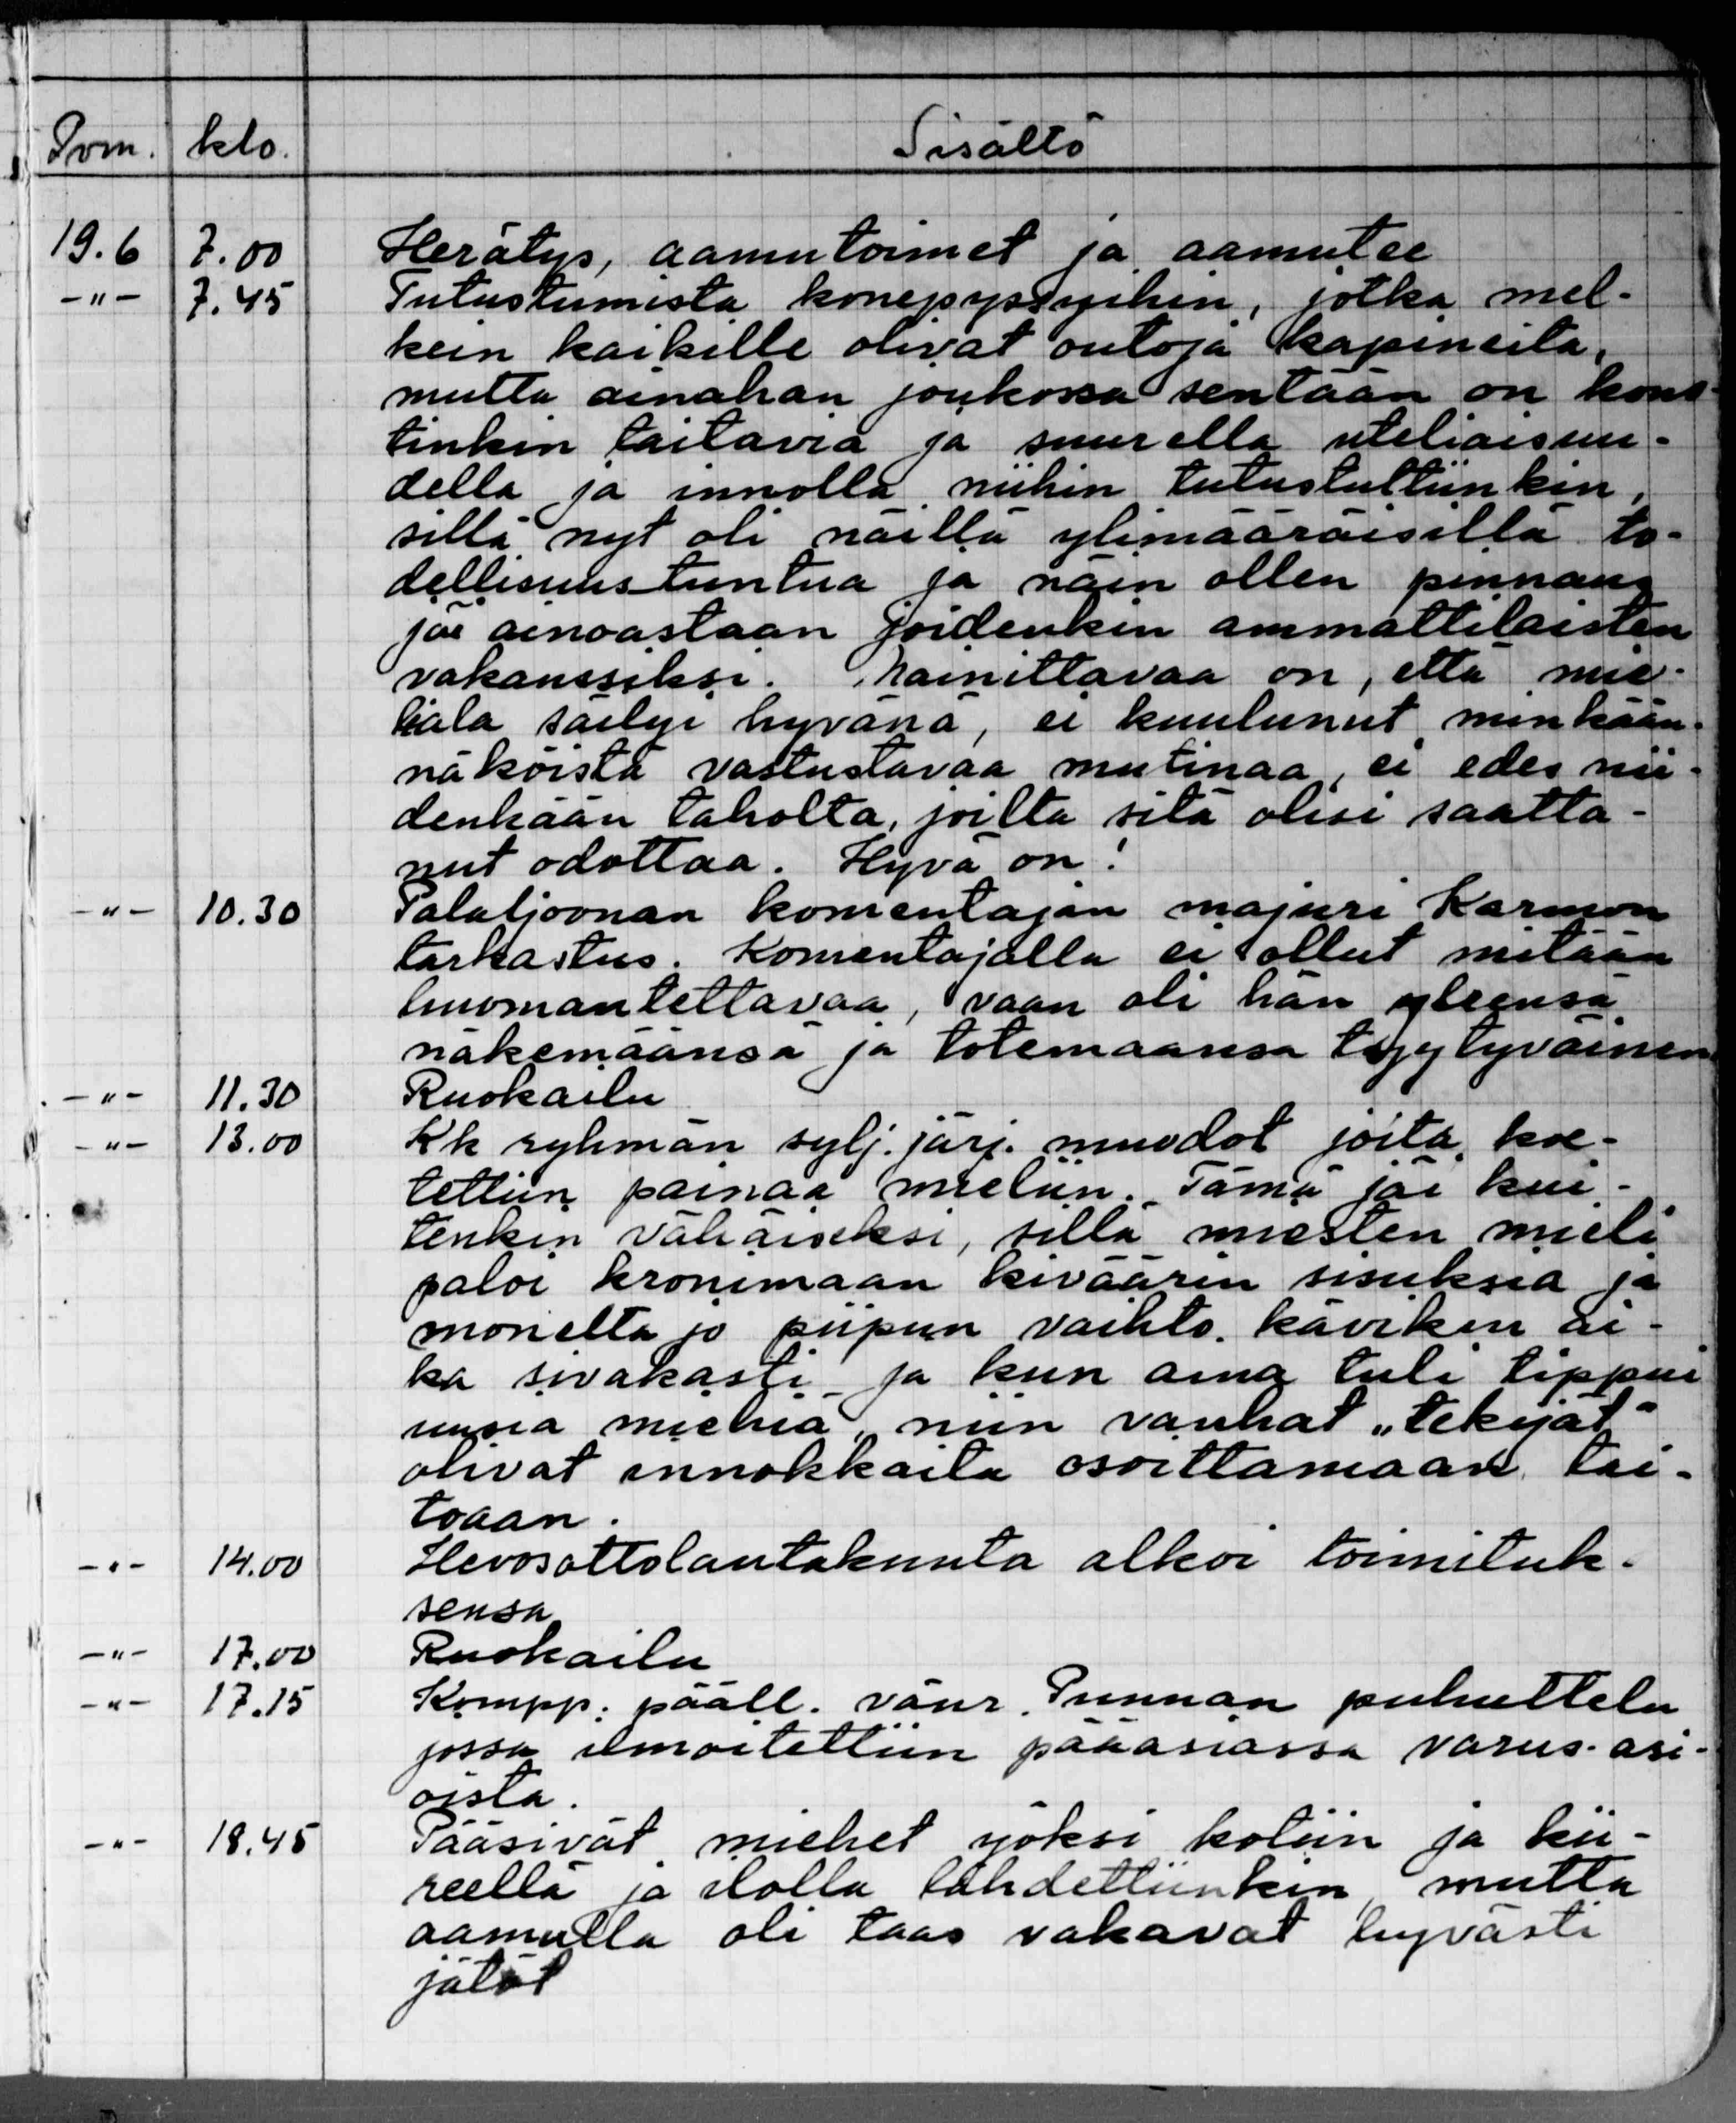 Pvm. klo. Sisältö
19.6 7.00 Herätys, aamutoimet ja aamutee
-"- 7.45 Tutustumista konepyssyihin, jotka mel-
kein kaikille olivat outoja kapineita,
mutta ainahan joukossa sentään on kons-
tinkin taitavia ja suurella uteliaisuu-
della ja innolla niihin tutustuttiinkin,
sillä nyt oli näillä ylimääräisillä to-
dellisuustuntua ja näin ollen pinnaus
jäi ainoastaan joidenkin ammattilaisten
vakanssiksi. Mainittavaa on, että mie-
liala säilyi hyvänä, ei kuulunut minkään-
näköistä vastustavaa mutinaa, ei edes nii-
denkään taholta, joilta sitä olisi saatta-
nut odottaa. Hyvä on!
-"- 10.30 Pataljoonan komentajan majuri Karmon
tarkastus. Komentajalla ei ollut mitään
huomautettavaa, vaan oli hän yleensä
näkemäänsä ja totemaansa tyytyväinen
-"- 11.30 Ruokailu
-"- 13.00 Kk ryhmän sylj. järj. muodot joita koe-
tettiin painaa mieliin. Tämä jäi kui-
tenkin vähäiseksi, sillä miesten mieli
paloi kronimaan kiväärin sisuksia ja
monelta jo piipun vaihto käviken ai-
ka sivakasti ja kun aina tuli tippui
uusia miehiä, niin vanhat „tekijät"
olivat innokkaita osoittamaan tai-
toaan.
-"- 14.00 Hevosottolautakunta alkoi toimituk-
sensa
-"- 17.00 Ruokailu
-"- 17.15 Kompp. pääll. vänr. Punnan puhuttelu
jossa ilmoitettiin pääasiassa varus-asi-
oista.
-"- 18.45 Pääsivät miehet yöksi kotiin ja kii-
reellä ja ilolla lähdettiinkin, mutta
aamulla oli taas vakavat hyvästi
jätöt